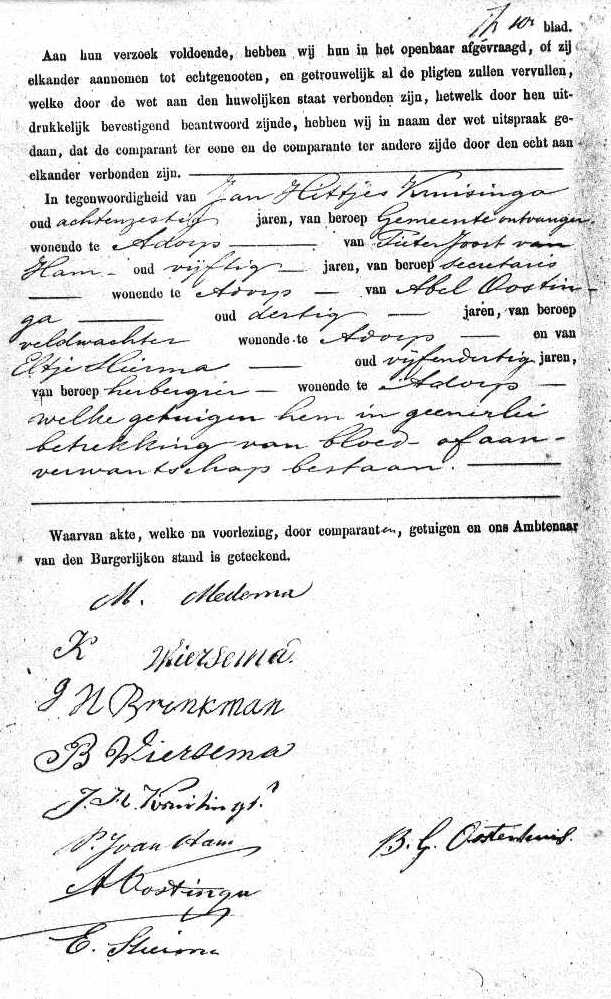 blad.
Aan hun verzoek voldoende, hebben wij hun in het openbaar afgevraagd, of zij
elkander aannemen tot echtgenooten, en getrouwelijk al de pligten zullen vervullen,
welke door de wet aan den huwelijken staat verbonden zijn, hetwelk door hen uit-
drukkelijk bevestigend beantwoord zijnde, hebben wij in naam der wet uitspraak ge-
daan, dat de comparant ter eene en de comparante ter andere zijde door den echt aan
elkander verbonden zijn.
In tegenwoordigheid van Jan Hittjes Kruisinga
oud achtenzestig jaren, van beroep Gemeente ontvanger
wonende te Adorp van Pieter Joost van
Ham oud vijftig jaren, van beroep secretaris
wonende te Adorp van Abel Oostin-
ga oud dertig jaren, van beroep
veldwachter wonende te Adorp en van
Eltje Stierma oud vijfendertig jaren,
van beroep herbergier wonende te Adorp
welke getuigen hem in geenerlei
betrekking van bloed- of aan-
verwantschap bestaan.
Waarvan akte, welke na voorlezing, door comparanten, getuigen en ons Ambtenaar
van den Burgerlijken stand is geteekend.
M. Medema
K Wiersema
J H Brinkman
B Wiersema
P. J van Ham
B. G. Oostenhuis.
A Oostinga